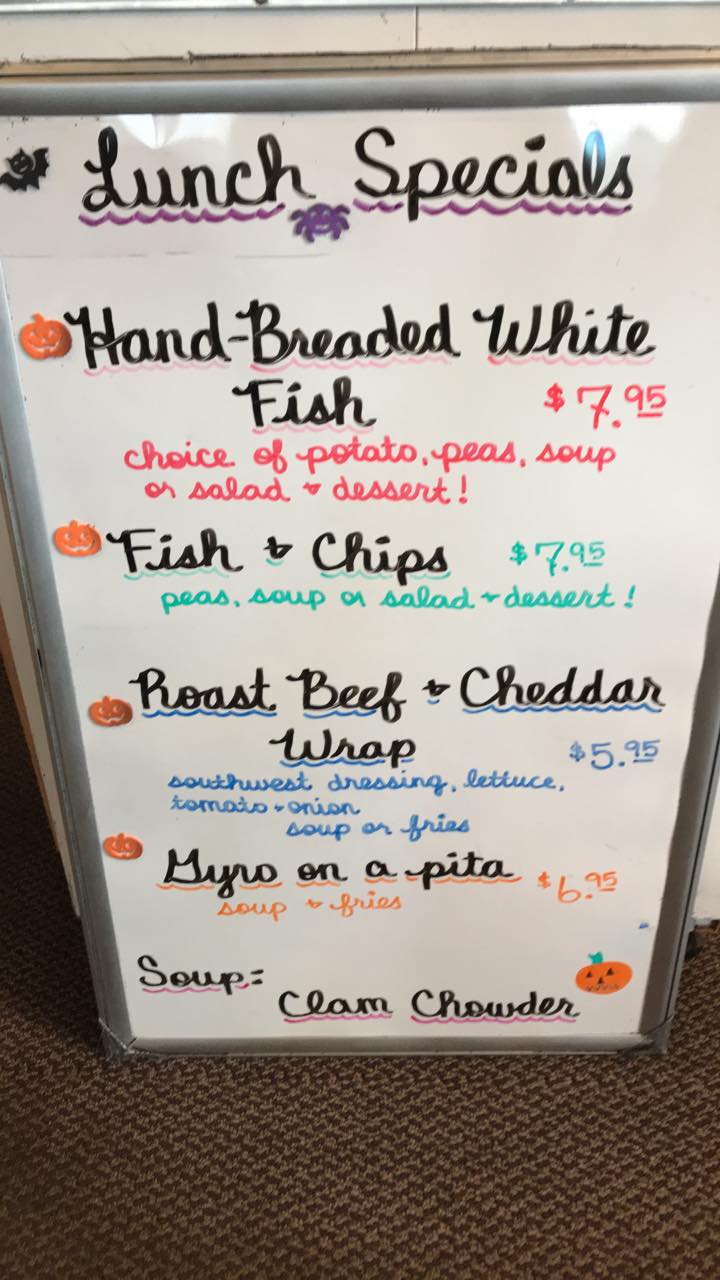 Lunch Specials
Hand-Breaded White
Fish $7.95
choice of potato, peas, soup
or salad & dessert!
Fish & Chips $7.95
peas, soup or salad & dessert!
Roast Beef & Cheddar
Wrap $5.95
southwest dressing, lettuce,
tomato & onion
soup or fries
Gyro on a pita $6.95
soup & fries
Soup:
Clam Chowder